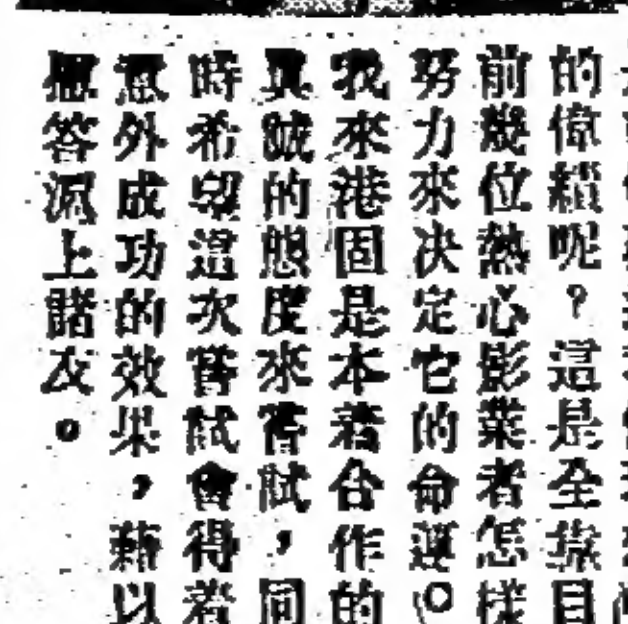 的偉績呢？這是全靠目
前幾位熱心影業者怎樣
努力來决定它的命運。
我來港固是本着合作的
真誠的態度來嘗試，同
時希望這次嘗試會得着
意外成功的效果，藉以
答滬上諸友。